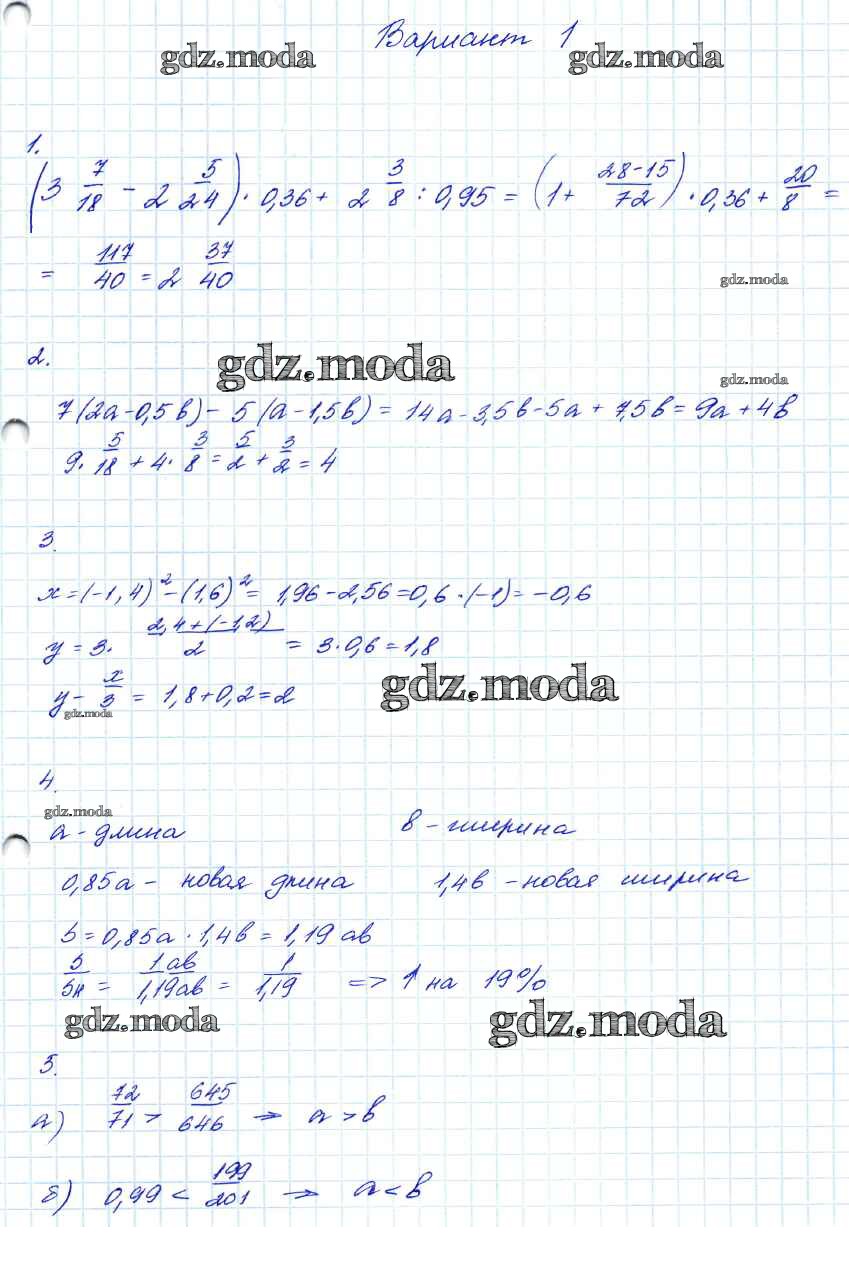 Вариант 1
gdz.moda gdz.moda
1.
(3 7/18 - 2 5/24) · 0,36 + 2 3/8 : 0,95 = (1 + 28-15/72) · 0,36 + 20/8 =
= 117/40 = 2 37/40
gdz.moda
2.
gdz.moda
gdz.moda
7(2a-0,5в) - 5(a-1,5в) = 14a-3,5в-5a+7,5в = 9a+4в
9 · 5/18 + 4 · 3/8 = 5/2 + 3/2 = 4
3.
x = (-1,4)² - (1,6)² = 1,96 - 2,56 = 0,6 · (-1) = -0,6
y = 3 · 2,4+(-1,2)/2 = 3 · 0,6 = 1,8
y - x/3 = 1,8 + 0,2 = 2
gdz.moda
gdz.moda
4.
gdz.moda
a - длина в - ширина
0,85a - новая длина 1,4в - новая ширина
S = 0,85a · 1,4в = 1,19 aв
S/Sн = 1aв/1,19aв = 1/1,19 => ↑ на 19%
gdz.moda gdz.moda
5.
а) 72/71 > 645/646 → a > в
б) 0,99 < 199/201 → a < в